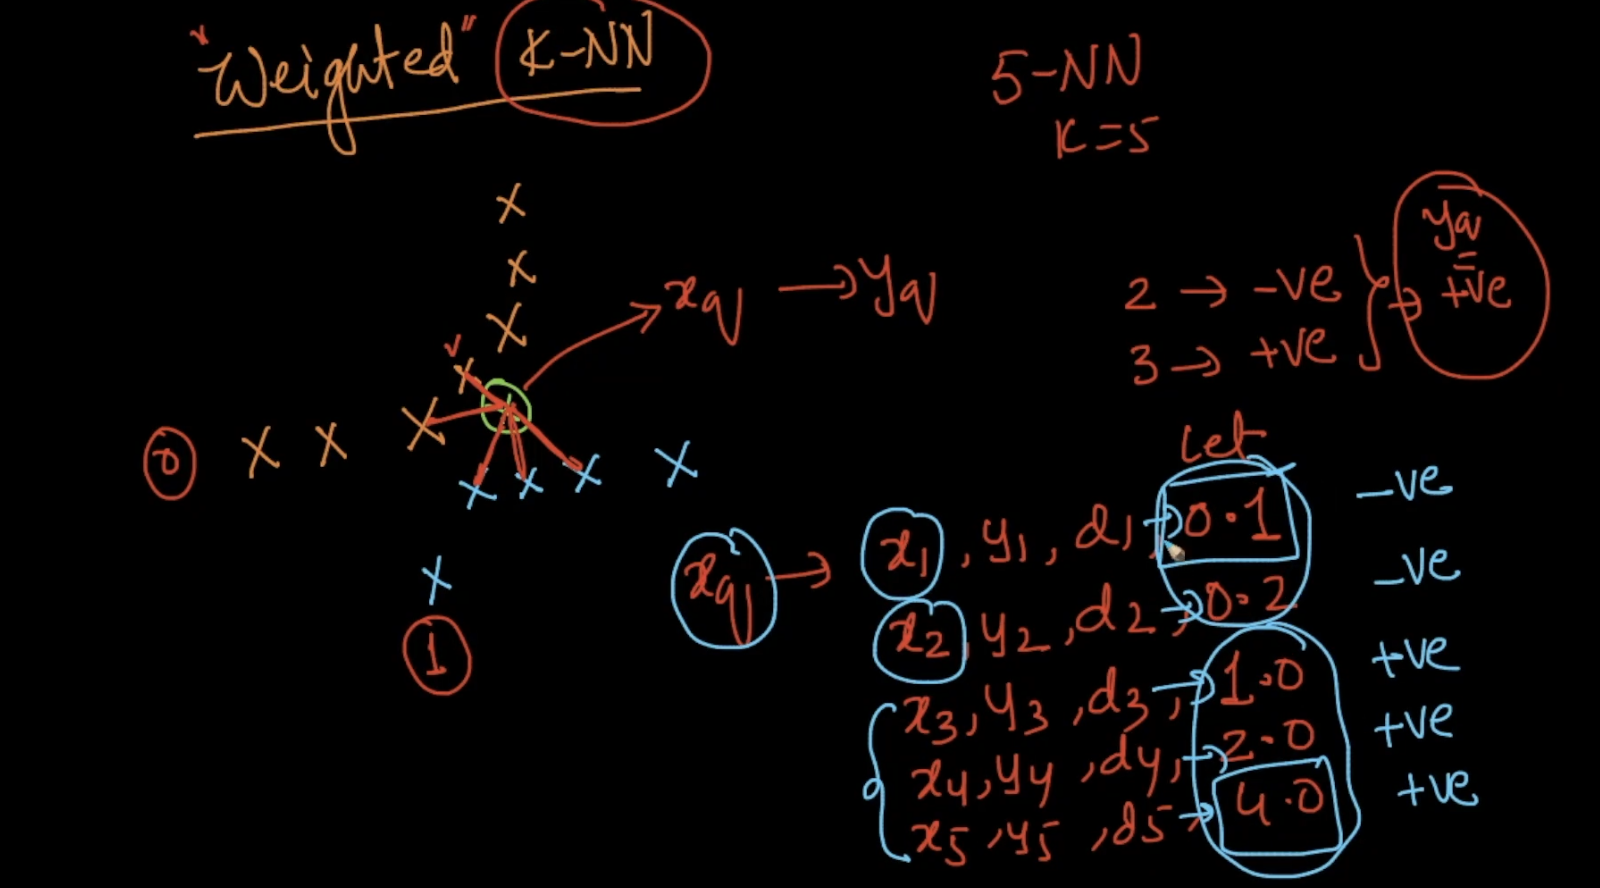 "Weighted" K-NN
5-NN
K=5
xq → yq
2 → -ve
3 → +ve
yq = +ve
0
1
Let
xq →
x1, y1, d1, → 0.1 -ve
x2, y2, d2, → 0.2 -ve
x3, y3, d3, → 1.0 +ve
x4, y4, d4, → 2.0 +ve
x5, y5, d5, → 4.0 +ve